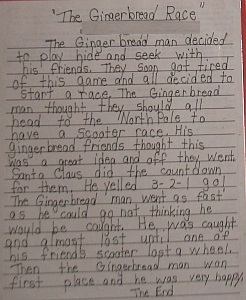 "The Gingerbread Race"
The Gingerbread man decided
to play hide and seek with
his friends. They soon got tired
of this game and all decided to
start a race. The Gingerbread
man thought they should all
head to the North Pole to
have a Scooter race. His
gingerbread friends thought this
was a great idea and off they went.
Santa Claus did the countdown
for them. He yelled 3-2-1 go!
The Gingerbread man went as fast
as he could go not thinking he
would be caught. He was caught
and almost lost until one of
his friends scooter lost a wheel.
Then the Gingerbread man won
first place and he was very happy.
The End